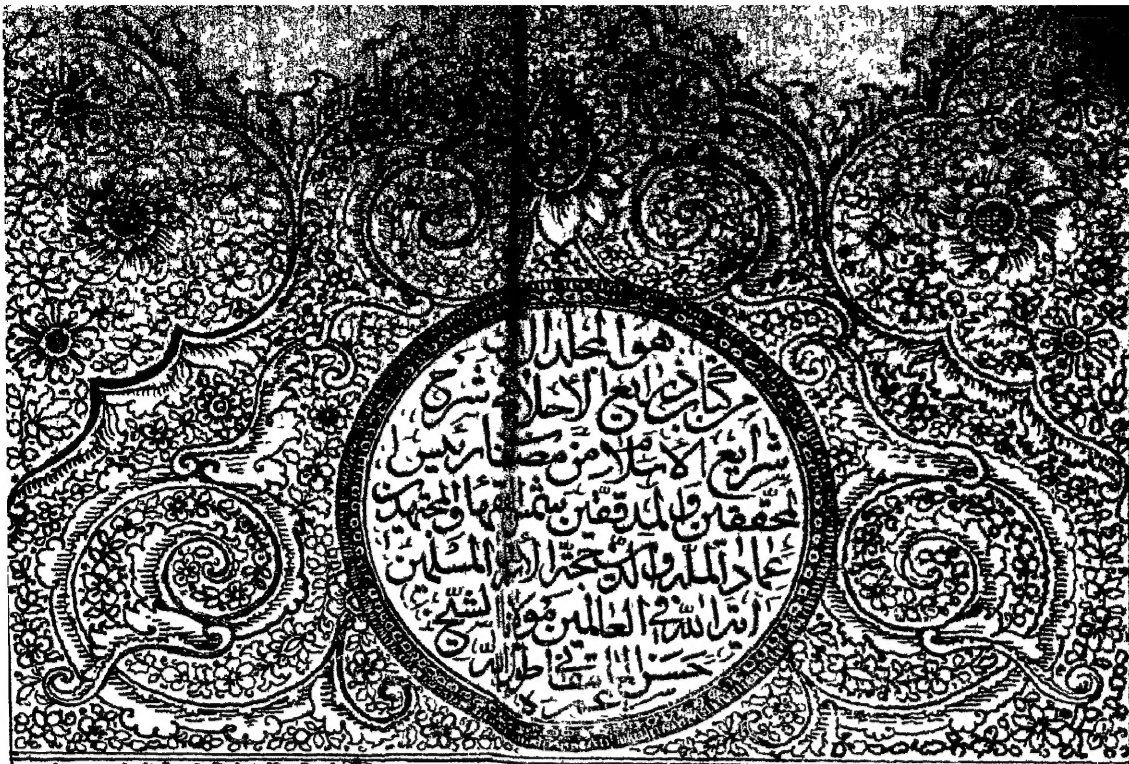 هو المجلد
من كتاب ذرايع الاحلام في شرح
شرايع الاسلام من مصنفات رئيس
المحققين والمدققين شمس الفقهاء والمجتهدين
عماد الملة والدين حجة الاسلام والمسلمين
آية الله في العالمين مولانا الشيخ
حسن المامقاني اطال الله
عمره